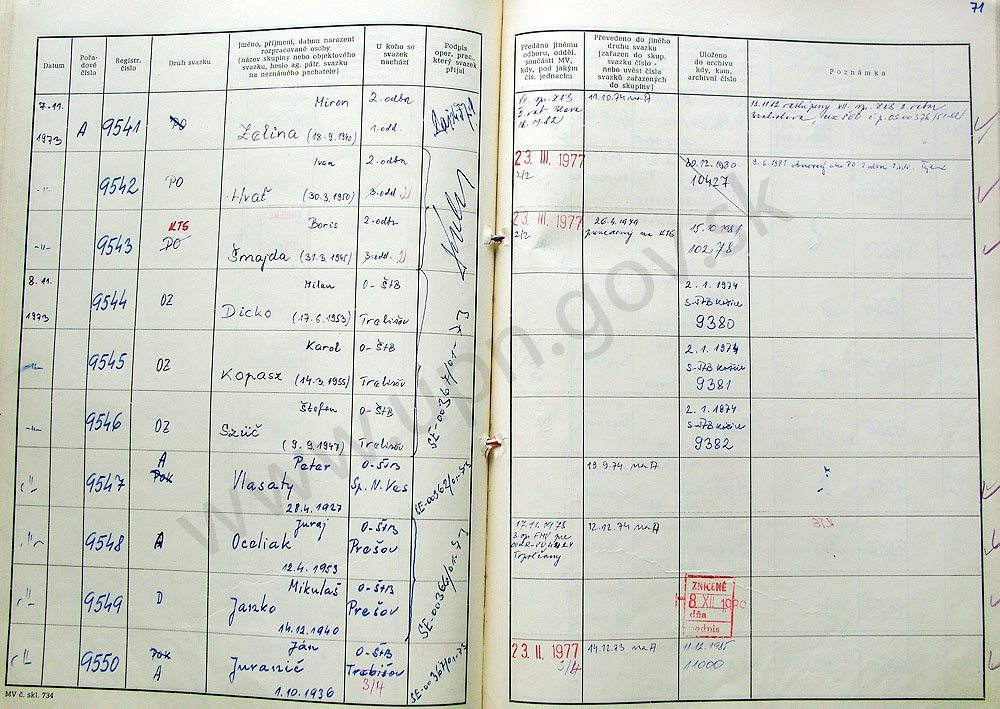 71
Datum
Pořa-
dové
číslo
Registr.
číslo
Druh svazku
Jméno, příjmení, datum narození
rozpracované osoby
(název skupiny nebo objektového
svazku, heslo ag. pátr. svazku
na neznámého pachatele)
U koho se
svazek
nachází
Podpis
oper. prac.,
který svazek
přijal
Předáno jinému
odboru, odděl.
součásti MV,
kdy, pod jakým
čís. jednacím
Převedeno do jiného
druhu svazku
(zařazen do skup.
svazku číslo -
nebo uvést čísla
svazků zařazených
do skupiny)
Uloženo
do archívu
kdy, kam,
archivní číslo
Poznámka
7.11.
1973
A
9541
PO
Miron
Zelina (18.9.1940)
2. odbn
1. odd.
11.10.74 na A
-"-
9542
PO
Ivan
Hvať (30.3.1950)
2. odbn
3. odd.
23. III. 1977
2/2
30.12.1980
10427
-"-
9543
KTS
PO
Boris
Šmajda (31.3.1945)
2. odbn
3. odd.
23. III. 1977
2/2
26.4.1979
prevedený na KTS
15.10.1981
10278
8.11.
1973
9544
OZ
Milan
Dicko (17.6.1953)
O-ŠtB
Trebišov
2.1.1974
S-ŠTB Košice
9380
-"-
9545
OZ
Karol
Kopasz (14.3.1955)
O-ŠtB
Trebišov
2.1.1974
S-ŠTB Košice
9381
-"-
9546
OZ
Štefan
Szüč (9.9.1947)
O-ŠtB
Trebišov
SE-00367/01-73
2.1.1974
S-ŠTB Košice
9382
-"-
9547
A
PoK
Peter
Vlasaty
28.4.1927
O-ŠtB
Sp. N. Ves
SE-00362/01-73
19.9.74 na A
-"-
9548
A
Juraj
Oceliak
12.4.1953
O-ŠtB
Prešov
17.11.1975
Topoľčany
12.12.74 na A
KTS
-"-
9549
D
Mikuláš
Janko
14.12.1940
O-ŠtB
Prešov
SE-00366/01-73
ZNIČENÉ
8. XII. 1990
dňa
podpis
-"-
9550
PoK
A
Ján
Juranič
1.10.1936
O-ŠtB
Trebišov
3/4
SE-00367/01-73
23. II. 1977
3/4
14.12.73 na A
11.12.1985
11000
MV č. skl. 734
www.upn.gov.sk